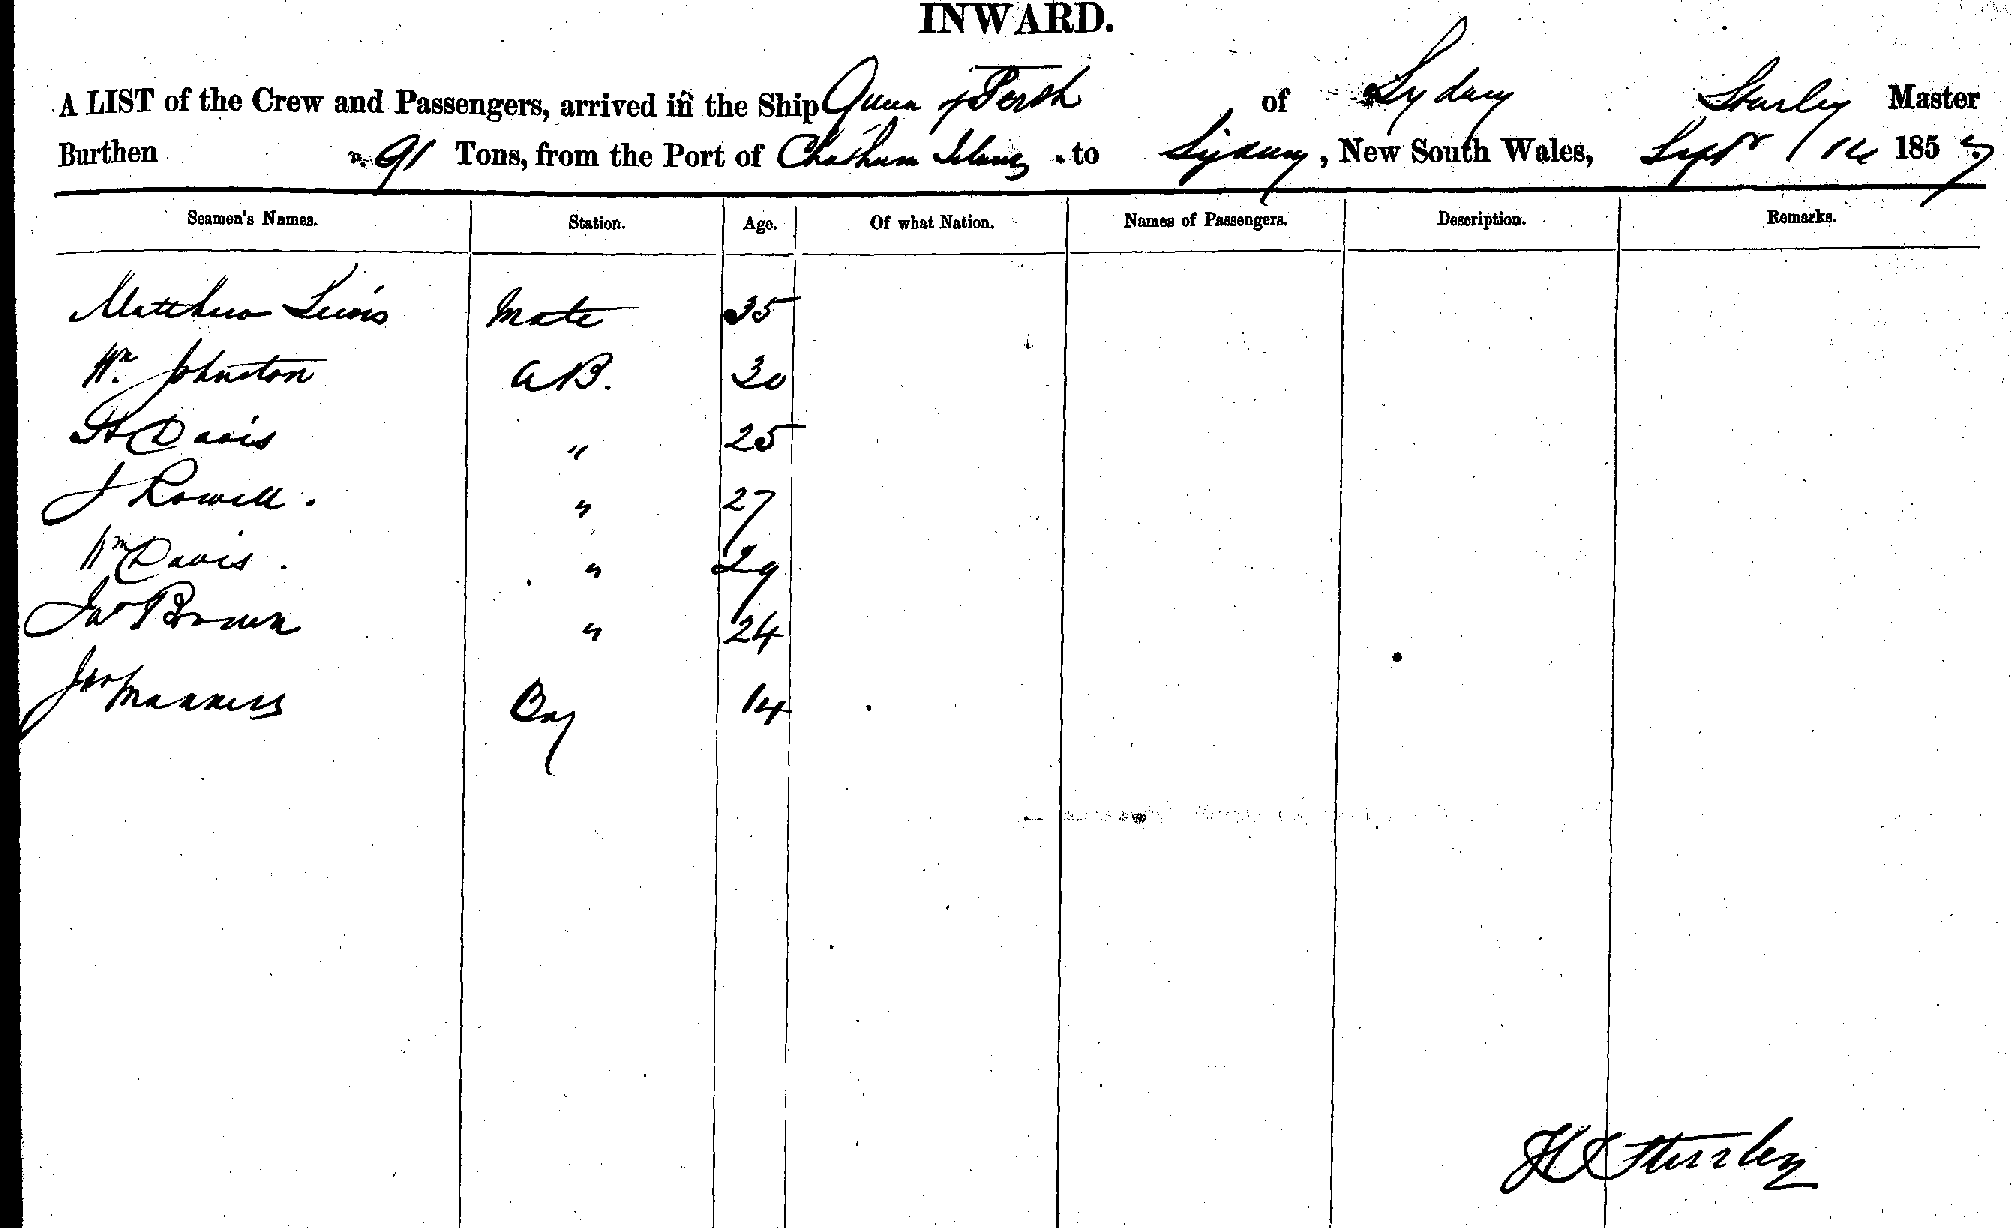 INWARD.
A LIST of the Crew and Passengers, arrived in the Ship Queen of Perth of Sydney Sturley Master
Burthen 91 Tons, from the Port of Chatham Islands to Sydney, New South Wales, Septr 1857
Seamen's Names. Station. Age. Of what Nation. Names of Passengers. Description. Remarks.
Matthew Lewis Mate 35
Wm Johnston AB. 30
Davis " 25
J Rowell. " 27
Wm Davis. " 29
Jno Brown " 24
Jno Manners Boy 14
Sturley